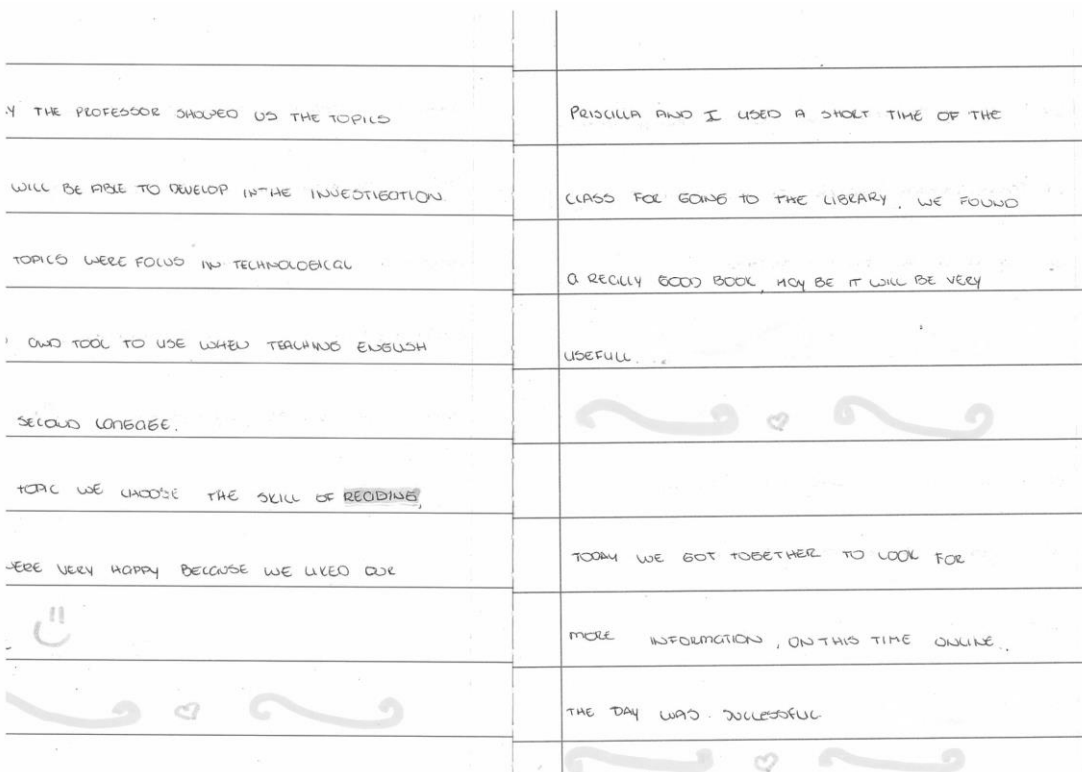 THE PROFESSOR SHOWED US THE TOPICS
WILL BE ABLE TO DEVELOP IN THE INVESTIGATION
TOPICS WERE FOCUS IN TECHNOLOGICAL
OWN TOOL TO USE WHEN TEACHING ENGLISH
SECOND LANGAGE.
TOPIC WE CHOOSE THE SKILL OF READING,
WERE VERY HAPPY BECAUSE WE LIKED OUR
PRISCILLA AND I USED A SHORT TIME OF THE
CLASS FOR GOING TO THE LIBRARY. WE FOUND
A REALLY GOOD BOOK, MAY BE IT WILL BE VERY
USEFULL...
TODAY WE GOT TOGETHER TO LOOK FOR
MORE INFORMATION, ON THIS TIME ONLINE..
THE DAY WAS SUCCESSFUL